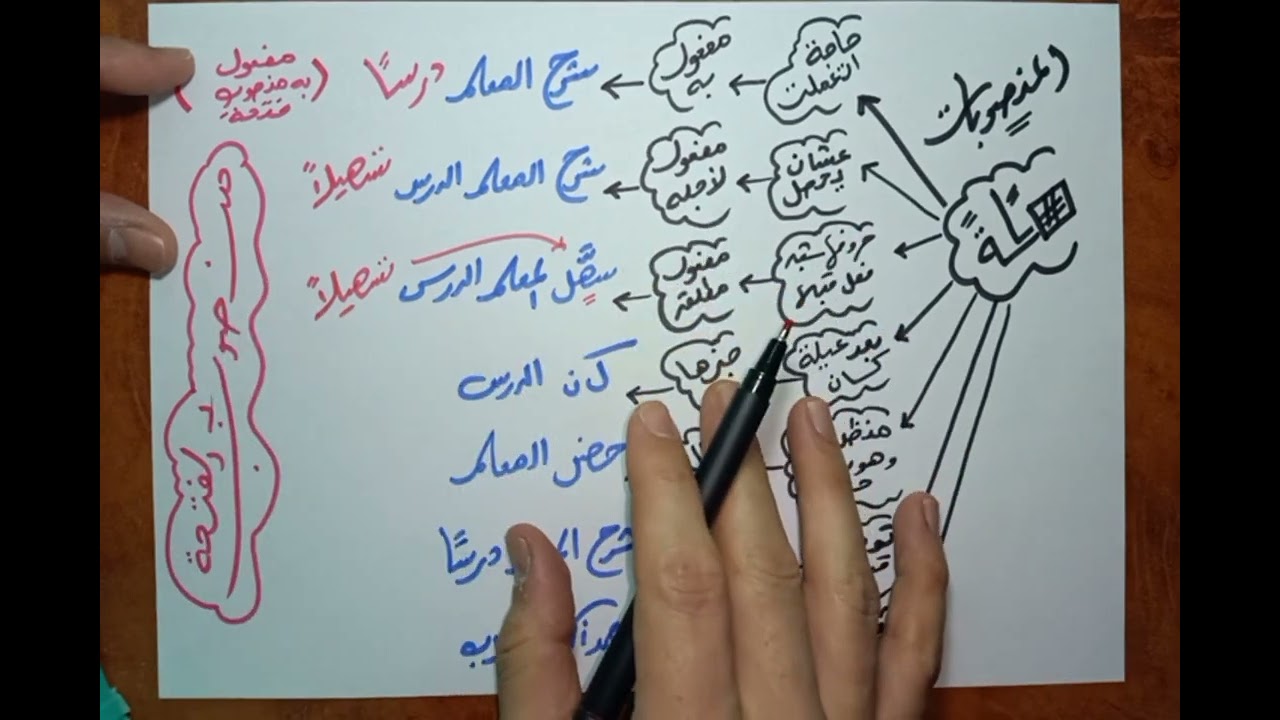 المنصوبات
حاجة
اتفعلت
مفعول
به
شرح المعلم درسًا
(مفعول
به منصوب
فتحة)
عشان
يحصل
مفعول
لأجله
شرح المعلم الدرس تسهيلاً
حروفها شبه
فعل قبلها
مفعول
مطلق
سهَّل المعلم الدرس تسهيلاً
بعد عيلة
كان
خبرها
كان الدرس
وهو
حضر المعلم
شرح
درسًا
منصوب
بالفتحة